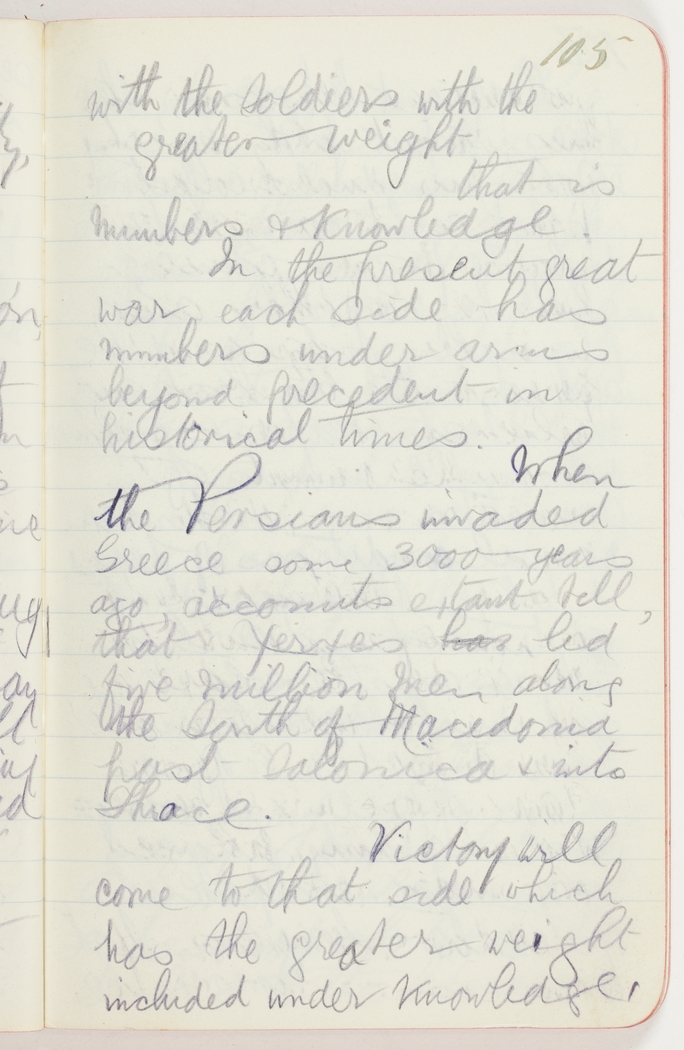 105
with the soldiers with the
greater weight
that is
numbers & knowledge.
In the present great
war, each side has
numbers under arms
beyond precedent in
historical times.
When
the Persians invaded
Greece some 3000 years
ago, accounts extant tell,
that Xerxes has led
five million men along
the South of Macedonia
past Salonica & into
Thrace.
Victory will
come to that side which
has the greater weight
included under knowledge.